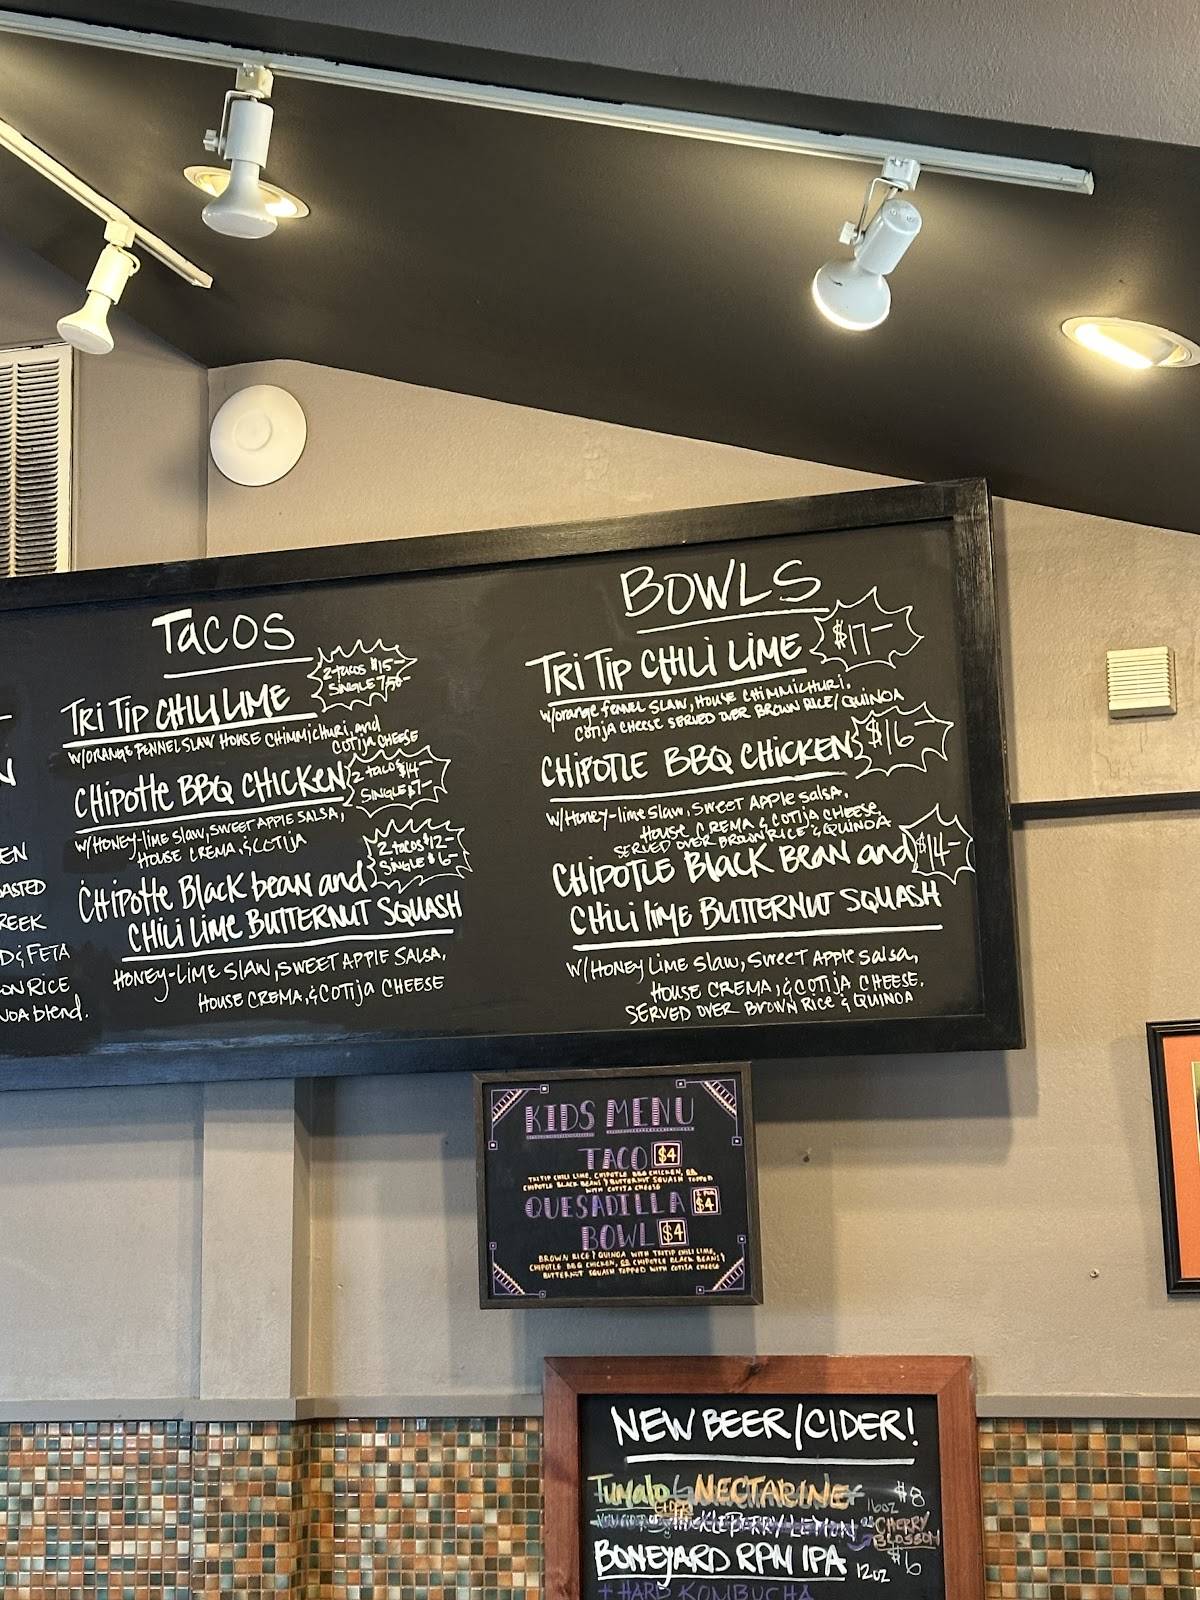 N
EN
REEK
D & FETA
ON RICE
NOA blend.
TACOS
TRI TIP CHILI LIME
2 TACOS $15-
SINGLE 7.50-
W/ORANGE FENNEL SLAW HOUSE CHIMMICHURI, AND
COTIJA CHEESE
CHIPOTLE BBQ CHICKEN
2 TACOS $14-
SINGLE $7-
W/HONEY-LIME SLAW, SWEET APPLE SALSA,
HOUSE CREMA, & COTIJA
CHIPOTLE BLACK BEAN AND
CHILI LIME BUTTERNUT SQUASH
2 TACOS $12-
SINGLE $6-
HONEY-LIME SLAW, SWEET APPLE SALSA,
HOUSE CREMA, & COTIJA CHEESE
BOWLS
TRI TIP CHILI LIME
$17-
W/ORANGE FENNEL SLAW, HOUSE CHIMMICHURI,
COTIJA CHEESE SERVED OVER BROWN RICE/QUINOA
CHIPOTLE BBQ CHICKEN
$16-
W/HONEY-LIME SLAW, SWEET APPLE SALSA,
HOUSE CREMA & COTIJA CHEESE,
SERVED OVER BROWN RICE & QUINOA
CHIPOTLE BLACK BEAN AND
$14-
CHILI LIME BUTTERNUT SQUASH
W/HONEY LIME SLAW, SWEET APPLE SALSA,
HOUSE CREMA, & COTIJA CHEESE.
SERVED OVER BROWN RICE & QUINOA
KIDS MENU
TACO $4
TRITIP CHILI LIME, CHIPOTLE BBQ CHICKEN, OR
CHIPOTLE BLACK BEANS & BUTTERNUT SQUASH TOPPED
WITH COTIJA CHEESE
QUESADILLA $4
BOWL $4
BROWN RICE & QUINOA WITH TRITIP CHILI LIME,
CHIPOTLE BBQ CHICKEN, OR CHIPOTLE BLACK BEANS &
BUTTERNUT SQUASH TOPPED WITH COTIJA CHEESE
NEW BEER/CIDER!
Tumalo NECTARINE
16oz $8
CHERRY
BLOSSOM
BONEYARD RPM IPA 12oz $6
+ HARD KOMBUCHA